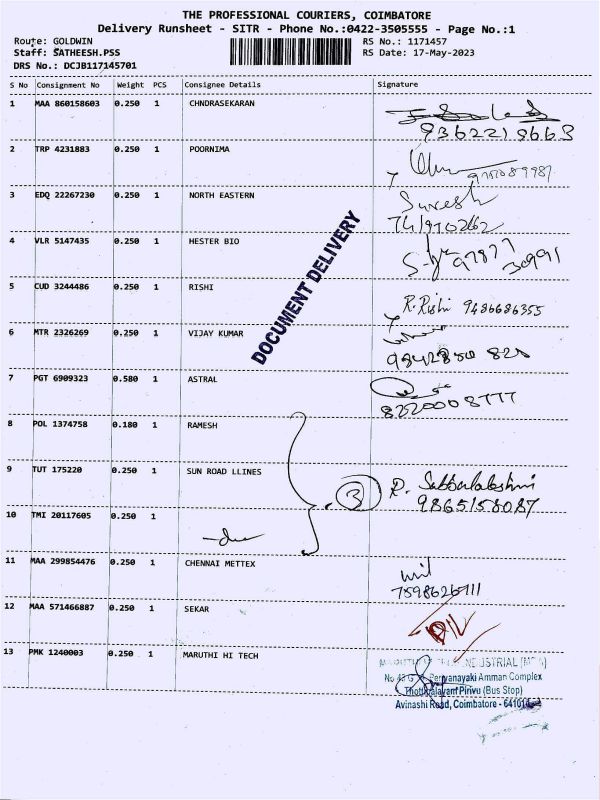 THE PROFESSIONAL COURIERS, COIMBATORE
Delivery Runsheet - SITR - Phone No.:0422-3505555 - Page No.:1
Route: GOLDWIN RS No.: 1171457
Staff: SATHEESH.PSS RS Date: 17-May-2023
DRS No.: DCJB117145701
S No Consignment No Weight PCS Consignee Details Signature
1 MAA 860158603 0.250 1 CHNDRASEKARAN
9362218668
2 TRP 4231883 0.250 1 POORNIMA
3 EDQ 22267230 0.250 1 NORTH EASTERN Suresh
4 VLR 5147435 0.250 1 HESTER BIO
97877
30991
5 CUD 3244486 0.250 1 RISHI R.Rishi 9486686355
6 MTR 2326269 0.250 1 VIJAY KUMAR
7 PGT 6909323 0.580 1 ASTRAL
8220008777
8 POL 1374758 0.180 1 RAMESH
9 TUT 175220 0.250 1 SUN ROAD LLINES
3 R. Subbulakshmi
9865158087
10 TMI 20117605 0.250 1
11 MAA 299854476 0.250 1 CHENNAI METTEX
7598626711
12 MAA 571466887 0.250 1 SEKAR
13 PMK 1240003 0.250 1 MARUTHI HI TECH
DOCUMENT DELIVERY
Periyanayaki Amman Complex
Pirivu (Bus Stop)
Avinashi Road, Coimbatore -